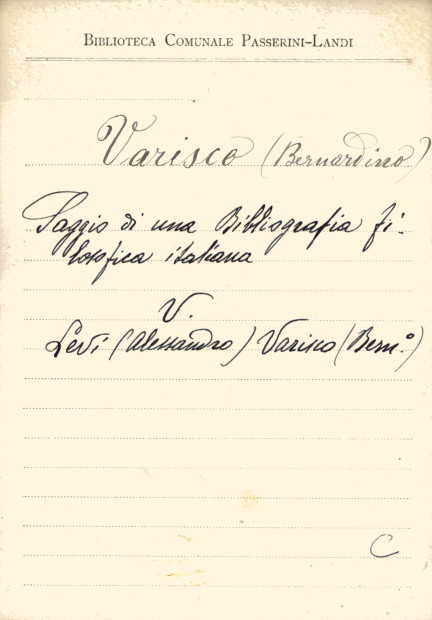 BIBLIOTECA COMUNALE PASSERINI-LANDI
Varisco (Bernardino)
Saggio di una Bibliografia fi-
losofica italiana
V.
Levi (Alessandro) Varisco (Bern.º)
C